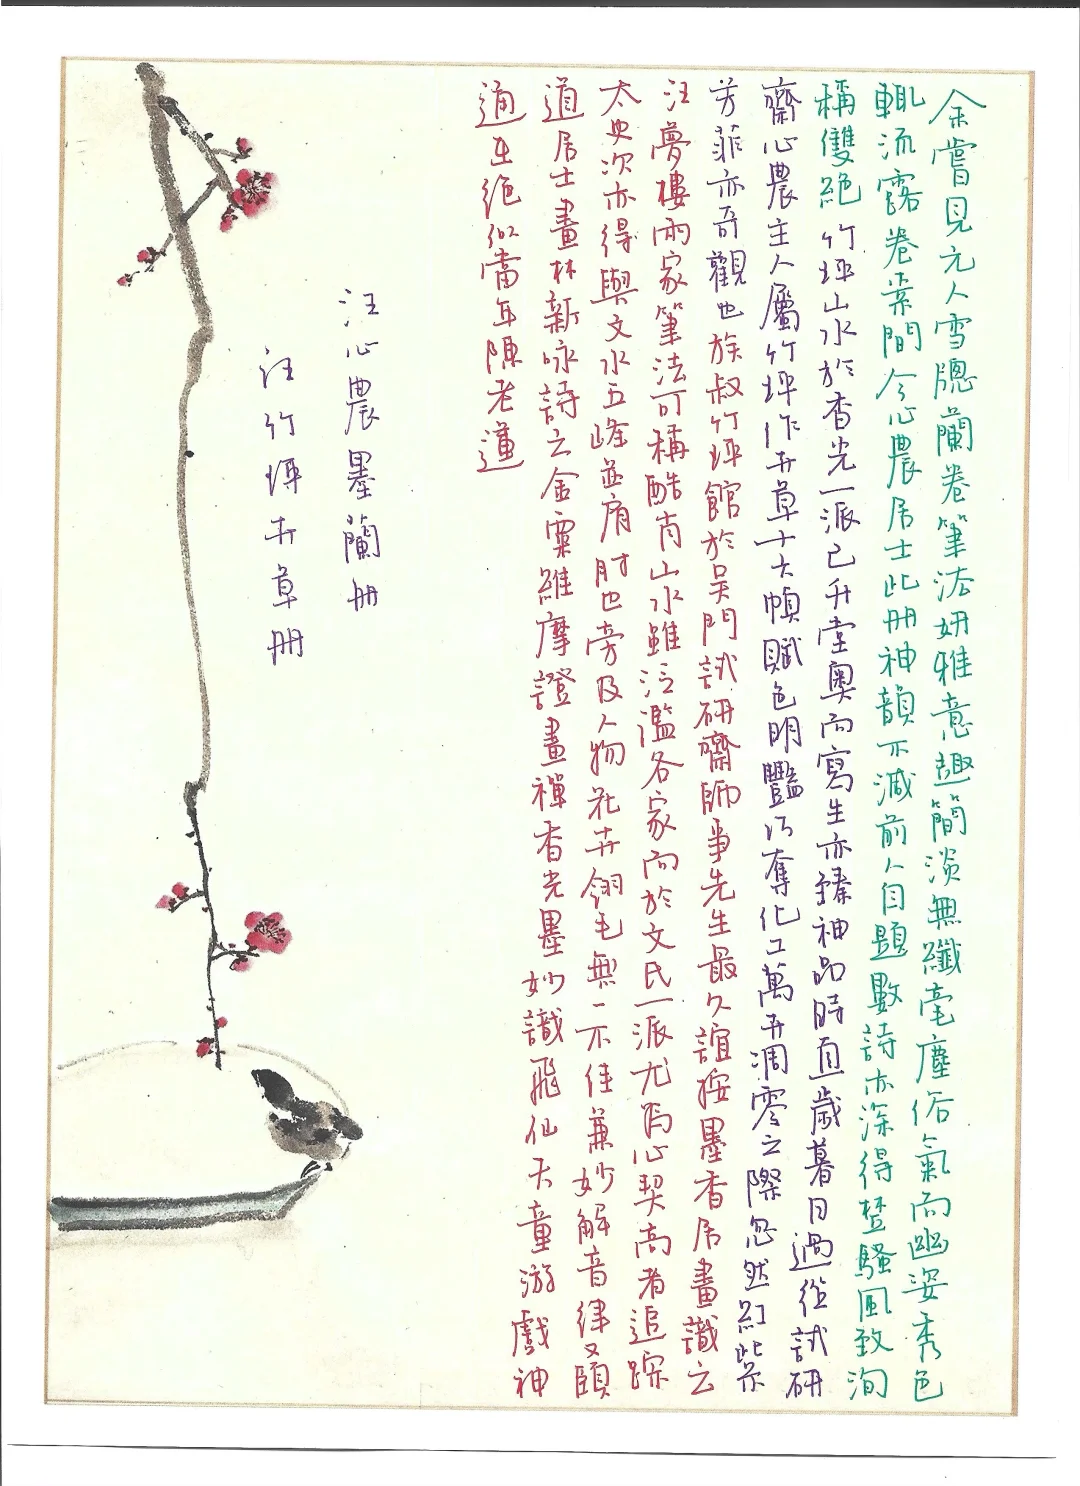 余嘗見元人雪牕蘭卷筆法妍雅意趣簡淡無纖毫塵俗氣而幽姿秀色
輒流露卷素間今心農居士此册神韻不減前人自題數詩亦深得楚騷風致洵
稱雙絕竹坪山水於香光一派已升堂奧而寫生亦臻神品時直歲暮日過從試研
齋心農主人屬竹坪作卉草十大幀賦色明豔巧奪化工萬卉凋零之際忽然幻此
芳菲亦奇觀也族叔竹坪館於吳門試研齋師事先生最久誼按墨香居畫識云
汪夢樓兩家筆法可稱酷肖山水雖泛濫各家而於文氏一派尤為心契高者追踪
太史次亦得與文水五峰並肩肘也旁及人物花卉翎毛無一不佳兼妙解音律又頤
道居士畫林新咏詩云金粟維摩證畫禪香光墨妙識飛仙天童游戲神
通在絕似當年陳老蓮
汪心農墨蘭册
汪竹坪卉草册